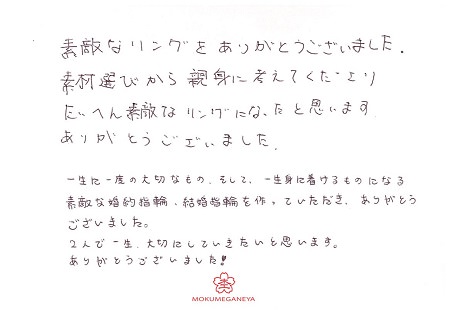 素敵なリングをありがとうございました.
素材選びから親身に考えてくださり
たいへん素敵なリングになったと思います.
ありがとうございました.
一生に一度の大切なもの、そして、一生身に着けるものになる
素敵な婚約指輪、結婚指輪を作っていただき、ありがとう
ございました。
2人で一生、大切にしていきたいと思います。
ありがとうございました!
MOKUMEGANEYA